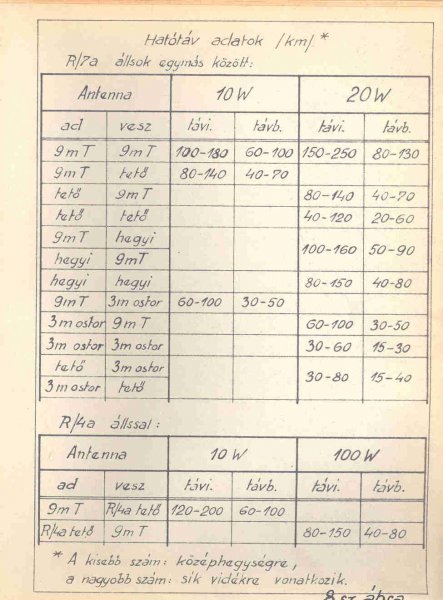 Hatótáv adatok /km/.*
R/7a állsok egymás között:
Antenna 10 W 20 W
ad vesz távi. távb. távi. távb.
9 m T 9 m T 100-180 60-100 150-250 80-130
9 m T tető 80-140 40-70
tető 9 m T 80-140 40-70
tető tető 40-120 20-60
9 m T hegyi 100-160 50-90
hegyi 9 m T
hegyi hegyi 80-150 40-80
9 m T 3 m ostor 60-100 30-50
3 m ostor 9 m T 60-100 30-50
3 m ostor 3 m ostor 30-60 15-30
tető 3 m ostor 30-80 15-40
3 m ostor tető
R/4a állssal:
Antenna 10 W 100 W
ad vesz távi. távb. távi. távb.
9 m T R/4a tető 120-200 60-100
R/4a tető 9 m T 80-150 40-80
* A kisebb szám: középhegységre,
a nagyobb szám: sík vidékre vonatkozik.
8.sz. ábra